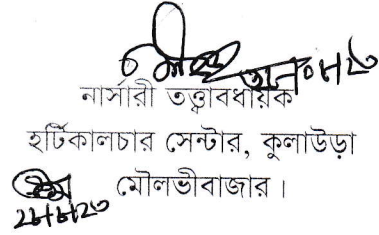 নার্সারী তত্ত্বাবধায়ক
হর্টিকালচার সেন্টার, কুলাউড়া
মৌলভীবাজার।